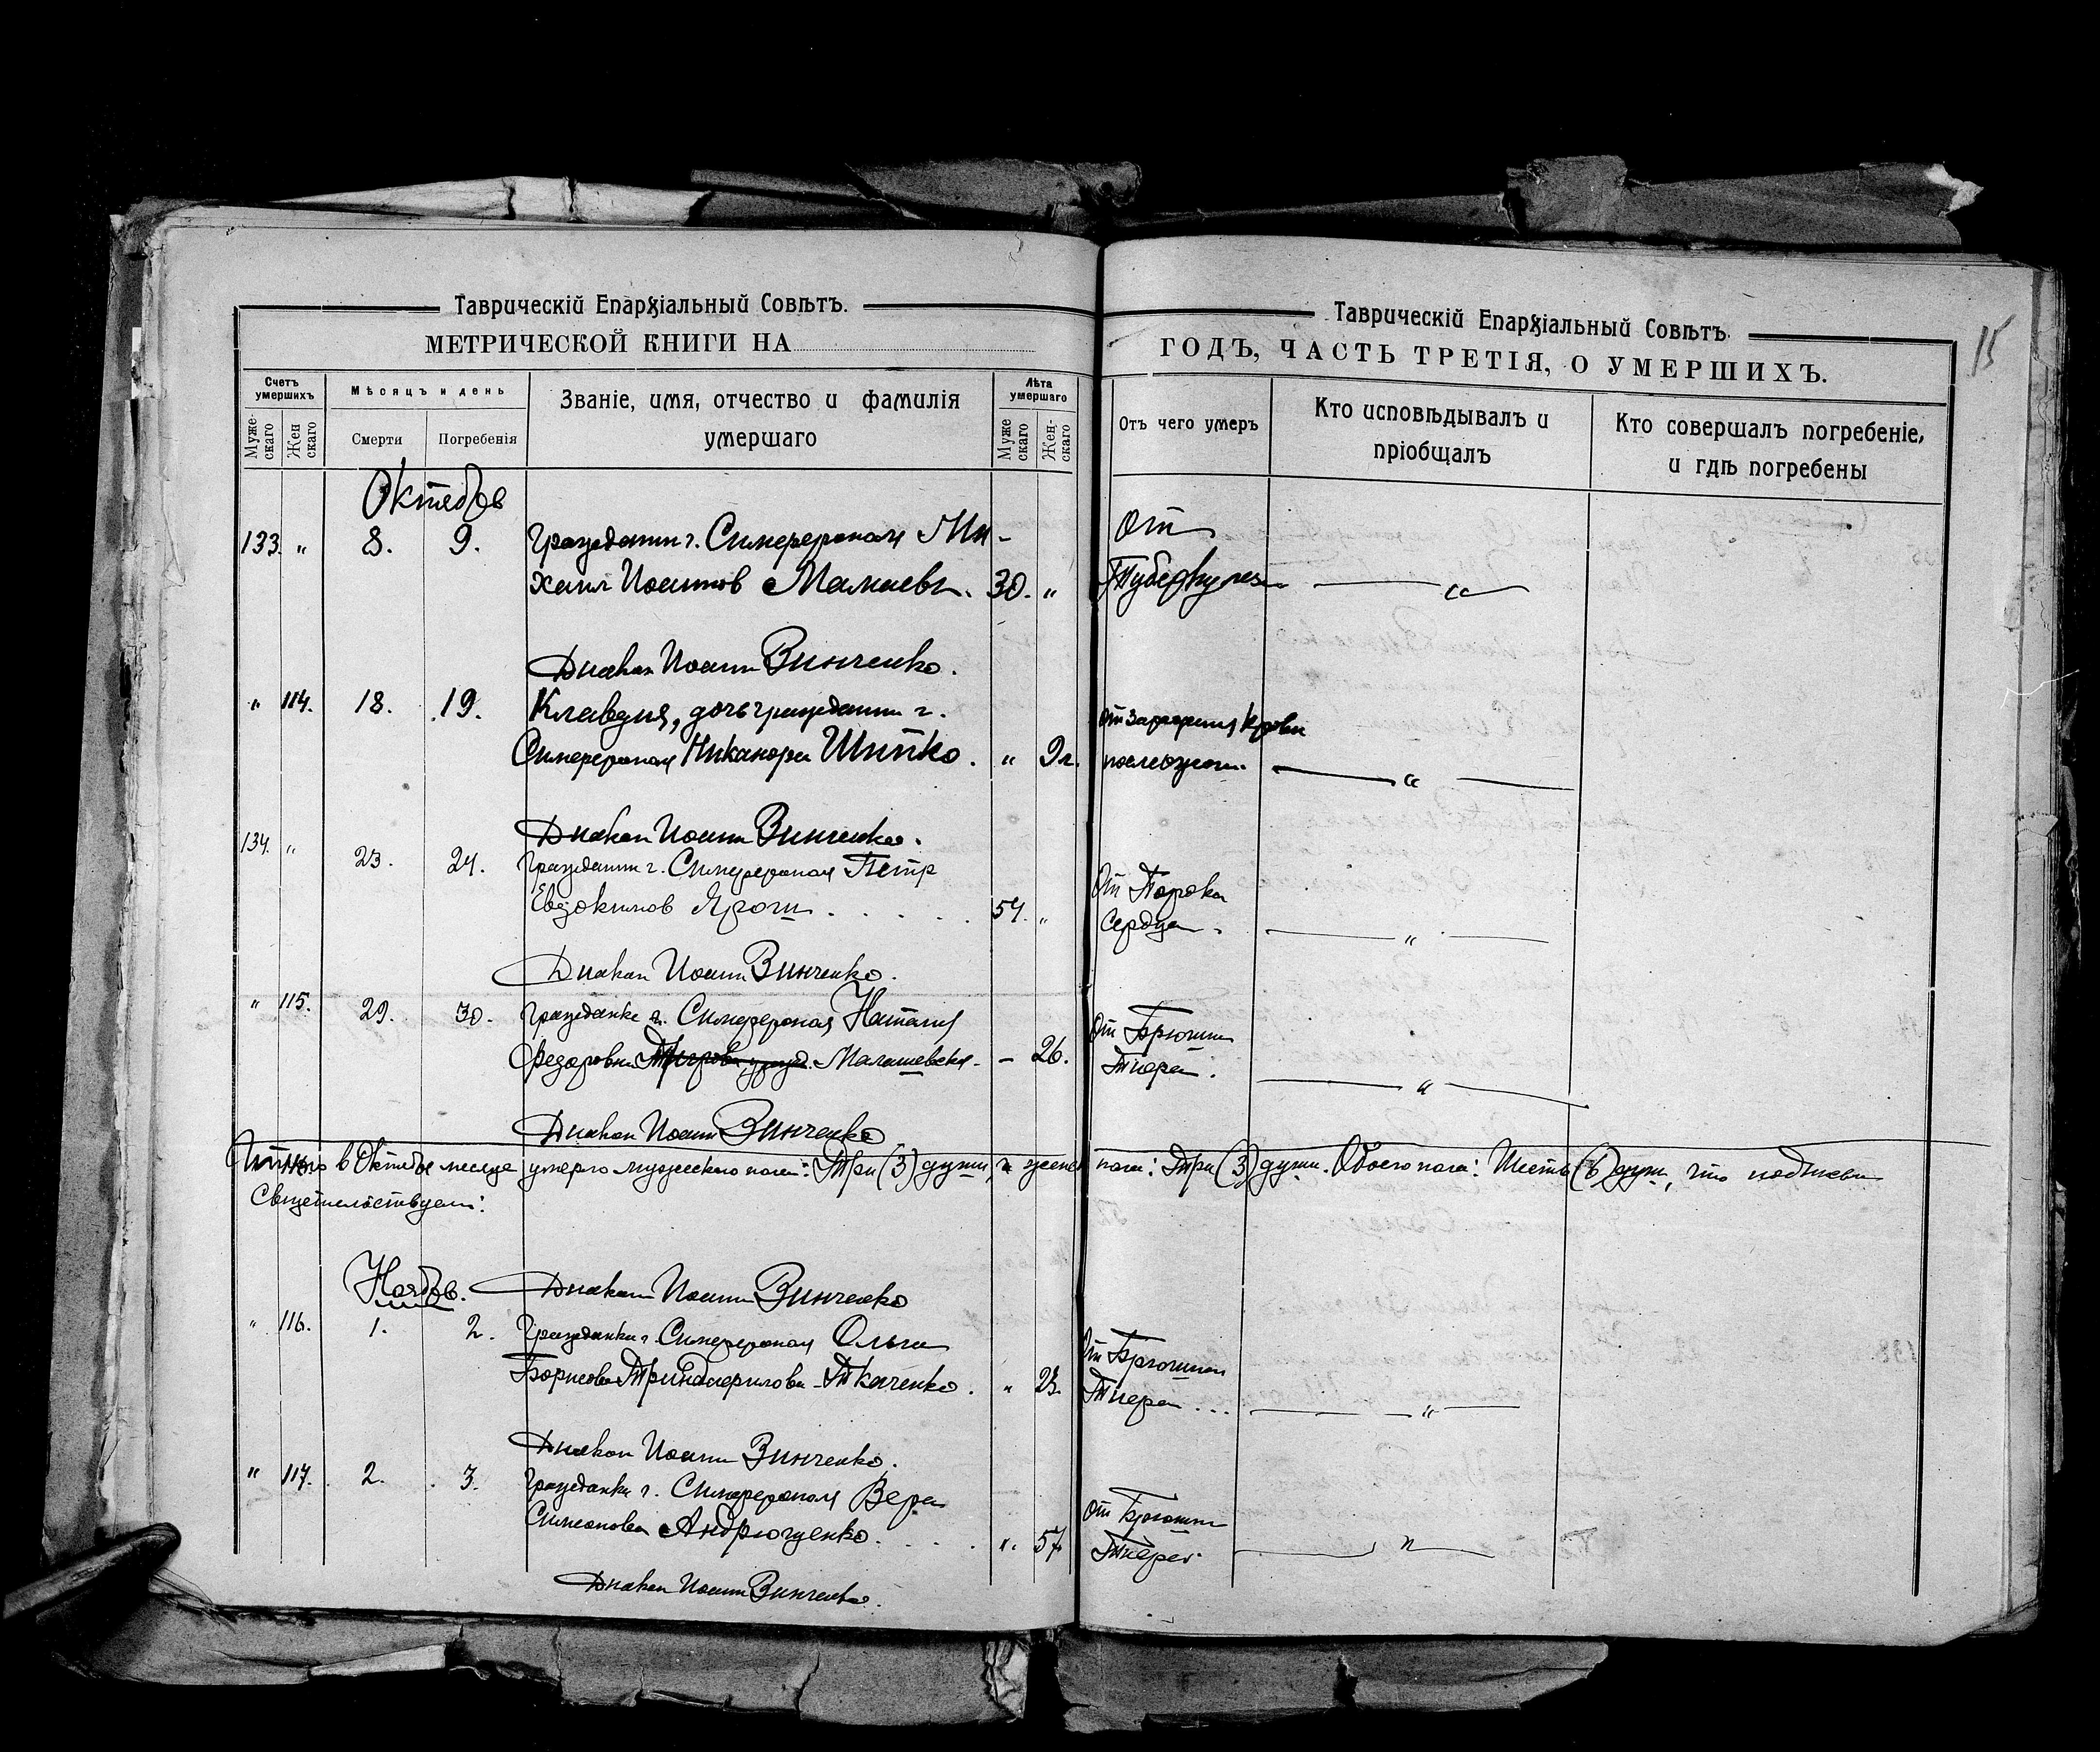 Таврическій Епархіальный Совѣтъ.
МЕТРИЧЕСКОЙ КНИГИ НА
Счетъ умершихъ
Мѣсяцъ и день
Званіе, имя, отчество и фамилія умершаго
Лѣта умершаго
Муже скаго
Жен скаго
Смерти
Погребенія
Муже скаго
Жен-скаго
Октябрь
133. " 8. 9. Гражданин г. Симферополя Ми-
хаил Иоаннов Мамаевъ. 30. "
Диакон Иоанн Винченко.
" 114. 18. 19. Клавдия, дочь гражданин г.
Симферополя Никанора Шипко. " 9 л.
Диакон Иоанн Винченко.
134. " 23. 24. Гражданин г. Симферополя Петр
Евдокимов Ярош . . . . . 54. "
Диакон Иоанн Винченко.
" 115. 29. 30. Гражданка г. Симферополя Наталия
Федоровна Малашевская - 26.
Диакон Иоанн Винченко
Итого в Октябре месяце умерло мужеского пола: Три (3) души, и женск
Свидетельствуем:
Диакон Иоанн Винченко
Ноябрь.
" 116. 1. 2. Гражданка г. Симферополя Ольга
Борисова Ткаченко. " 23.
Диакон Иоанн Винченко.
" 117. 2. 3. Гражданка г. Симферополя Вера
Симеонова Андрющенко. . . . " 57
Диакон Иоанн Винченко.
Таврическій Епархіальный Совѣтъ.
15
ГОДЪ, ЧАСТЬ ТРЕТІЯ, О УМЕРШИХЪ.
Отъ чего умеръ
Кто исповѣдывалъ и пріобщалъ
Кто совершалъ погребеніе, и гдѣ погребены
От
Туберкулеза "
От заражения крови
"
От Порока
Сердца. "
От Брюшн
Тифа. "
пола: Три (3) души. Обоего пола: Шесть (6) душ, что подписью
От Брюшного
Тифа ... "
От Брюшн
Тифа. "